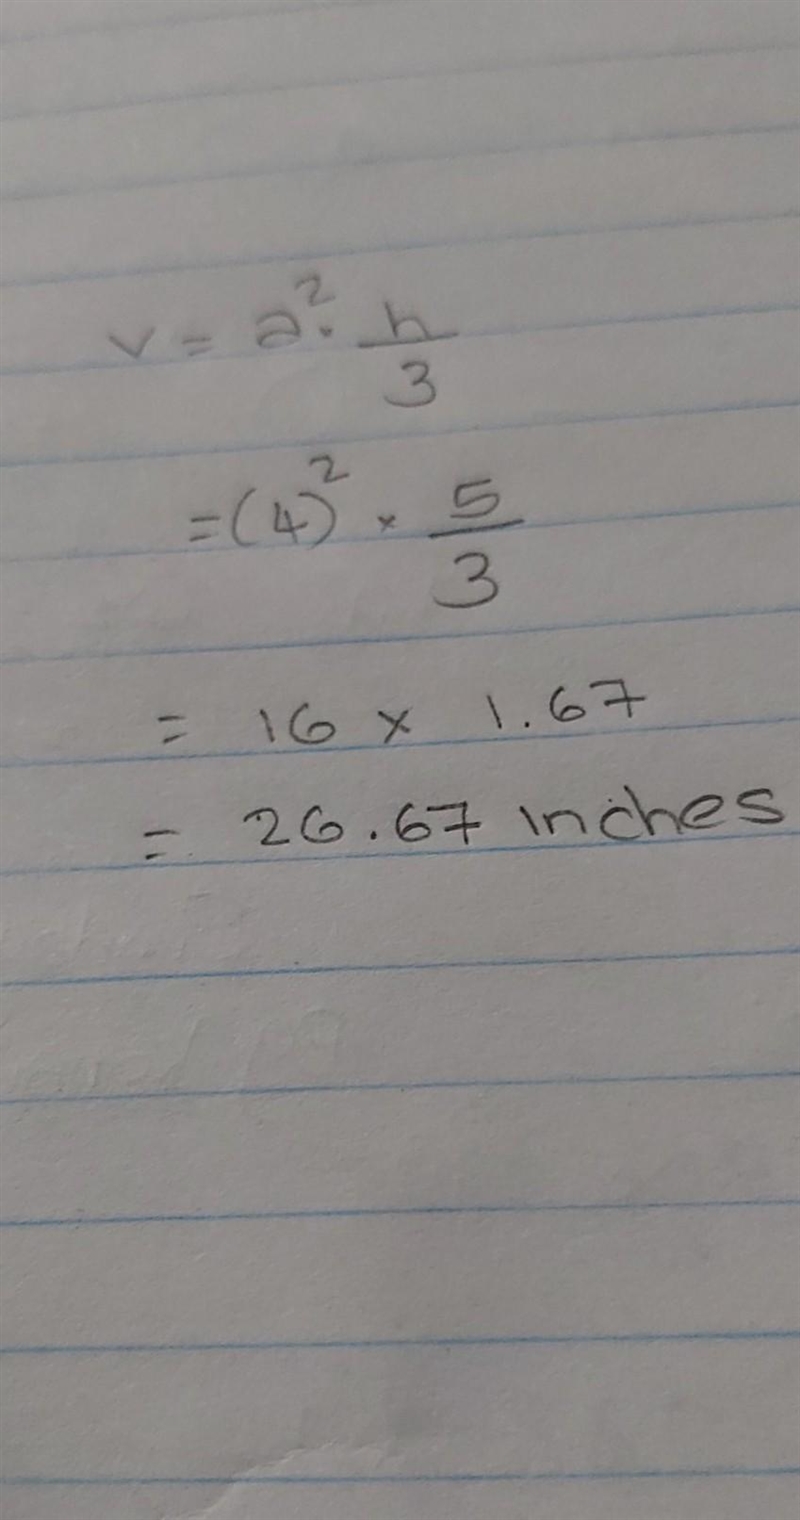 v = a². h/3
= (4)² × 5/3
= 16 × 1.67
= 26.67 inches